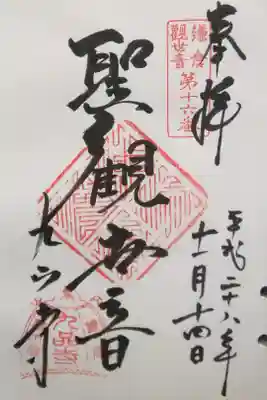 奉拝
鎌倉
観世音
第十六番
平成二十八年
十一月十四日
聖観世音
九品寺
九品寺